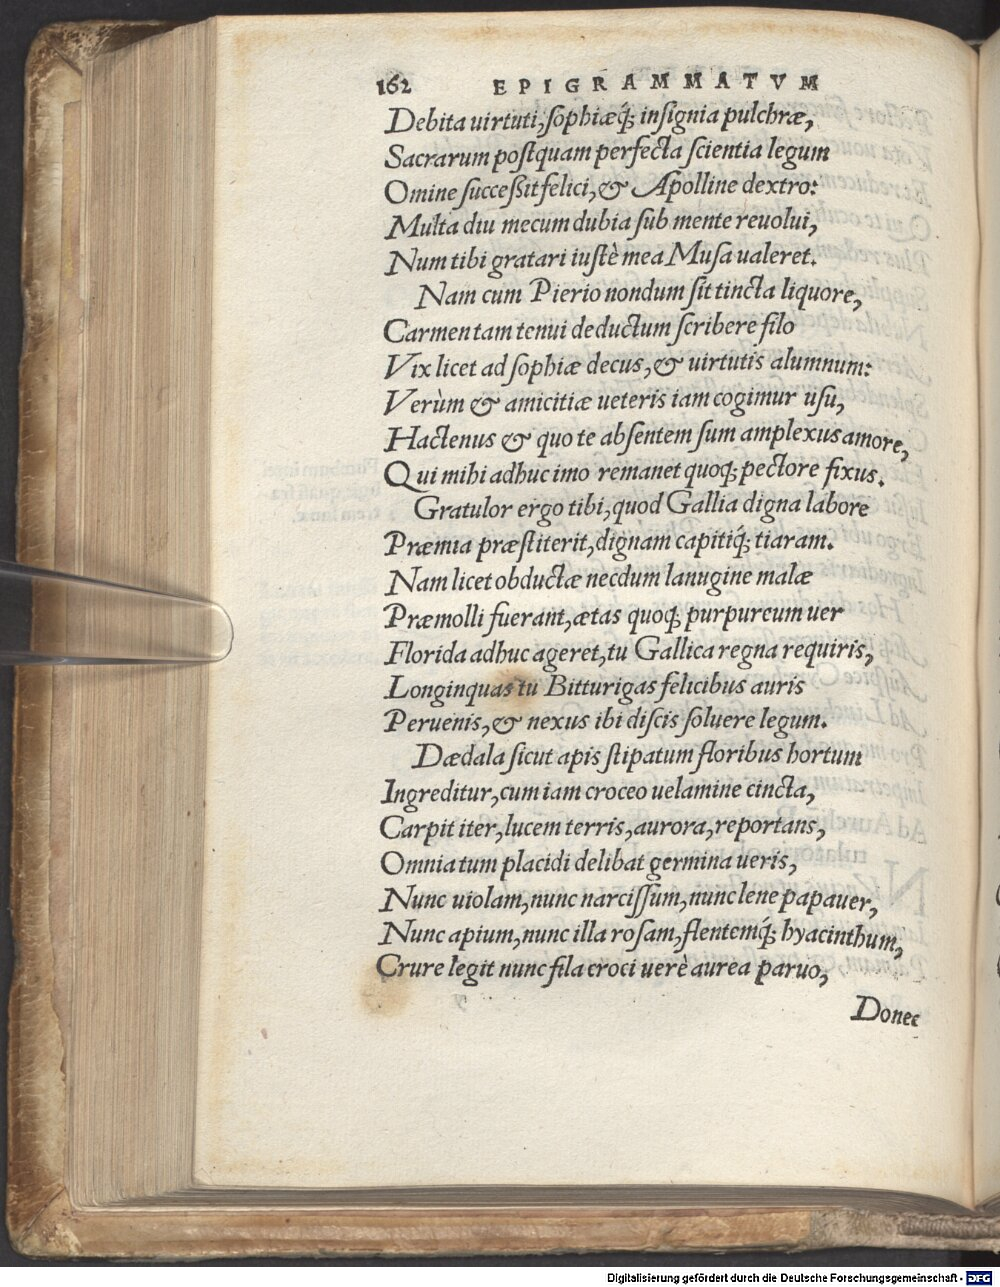 162 EPIGRAMMATVM
Debita uirtuti, sophiæq́; insignia pulchræ,
Sacrarum postquam perfecta scientia legum
Omine successit felici, & Apolline dextro:
Multa diu mecum dubia sub mente reuolui,
Num tibi gratari iustè mea Musa ualeret.
Nam cum Pierio nondum sit tincta liquore,
Carmen tam tenui deductum scribere filo
Vix licet ad sophiæ decus, & uirtutis alumnum:
Verùm & amicitiæ ueteris iam cogimur usu,
Hactenus & quo te absentem sum amplexus amore,
Qui mihi adhuc imo remanet quoq; pectore fixus.
Gratulor ergo tibi, quod Gallia digna labore
Præmia præstiterit, dignam capitiq́; tiaram.
Nam licet obductæ necdum lanugine malæ
Præmolli fuerant, ætas quoq; purpureum uer
Florida adhuc ageret, tu Gallica regna requiris,
Longinquas tu Bitturigas felicibus auris
Peruenis, & nexus ibi discis soluere legum.
Dædala sicut apis stipatum floribus hortum
Ingreditur, cum iam croceo uelamine cincta,
Carpit iter, lucem terris, aurora, reportans,
Omnia tum placidi delibat germina ueris,
Nunc uiolam, nunc narcissum, nunc lene papauer,
Nunc apium, nunc illa rosam, flentemq́; hyacinthum,
Crure legit nunc fila croci uerè aurea paruo,
Donec
Digitalisierung gefördert durch die Deutsche Forschungsgemeinschaft - DFG